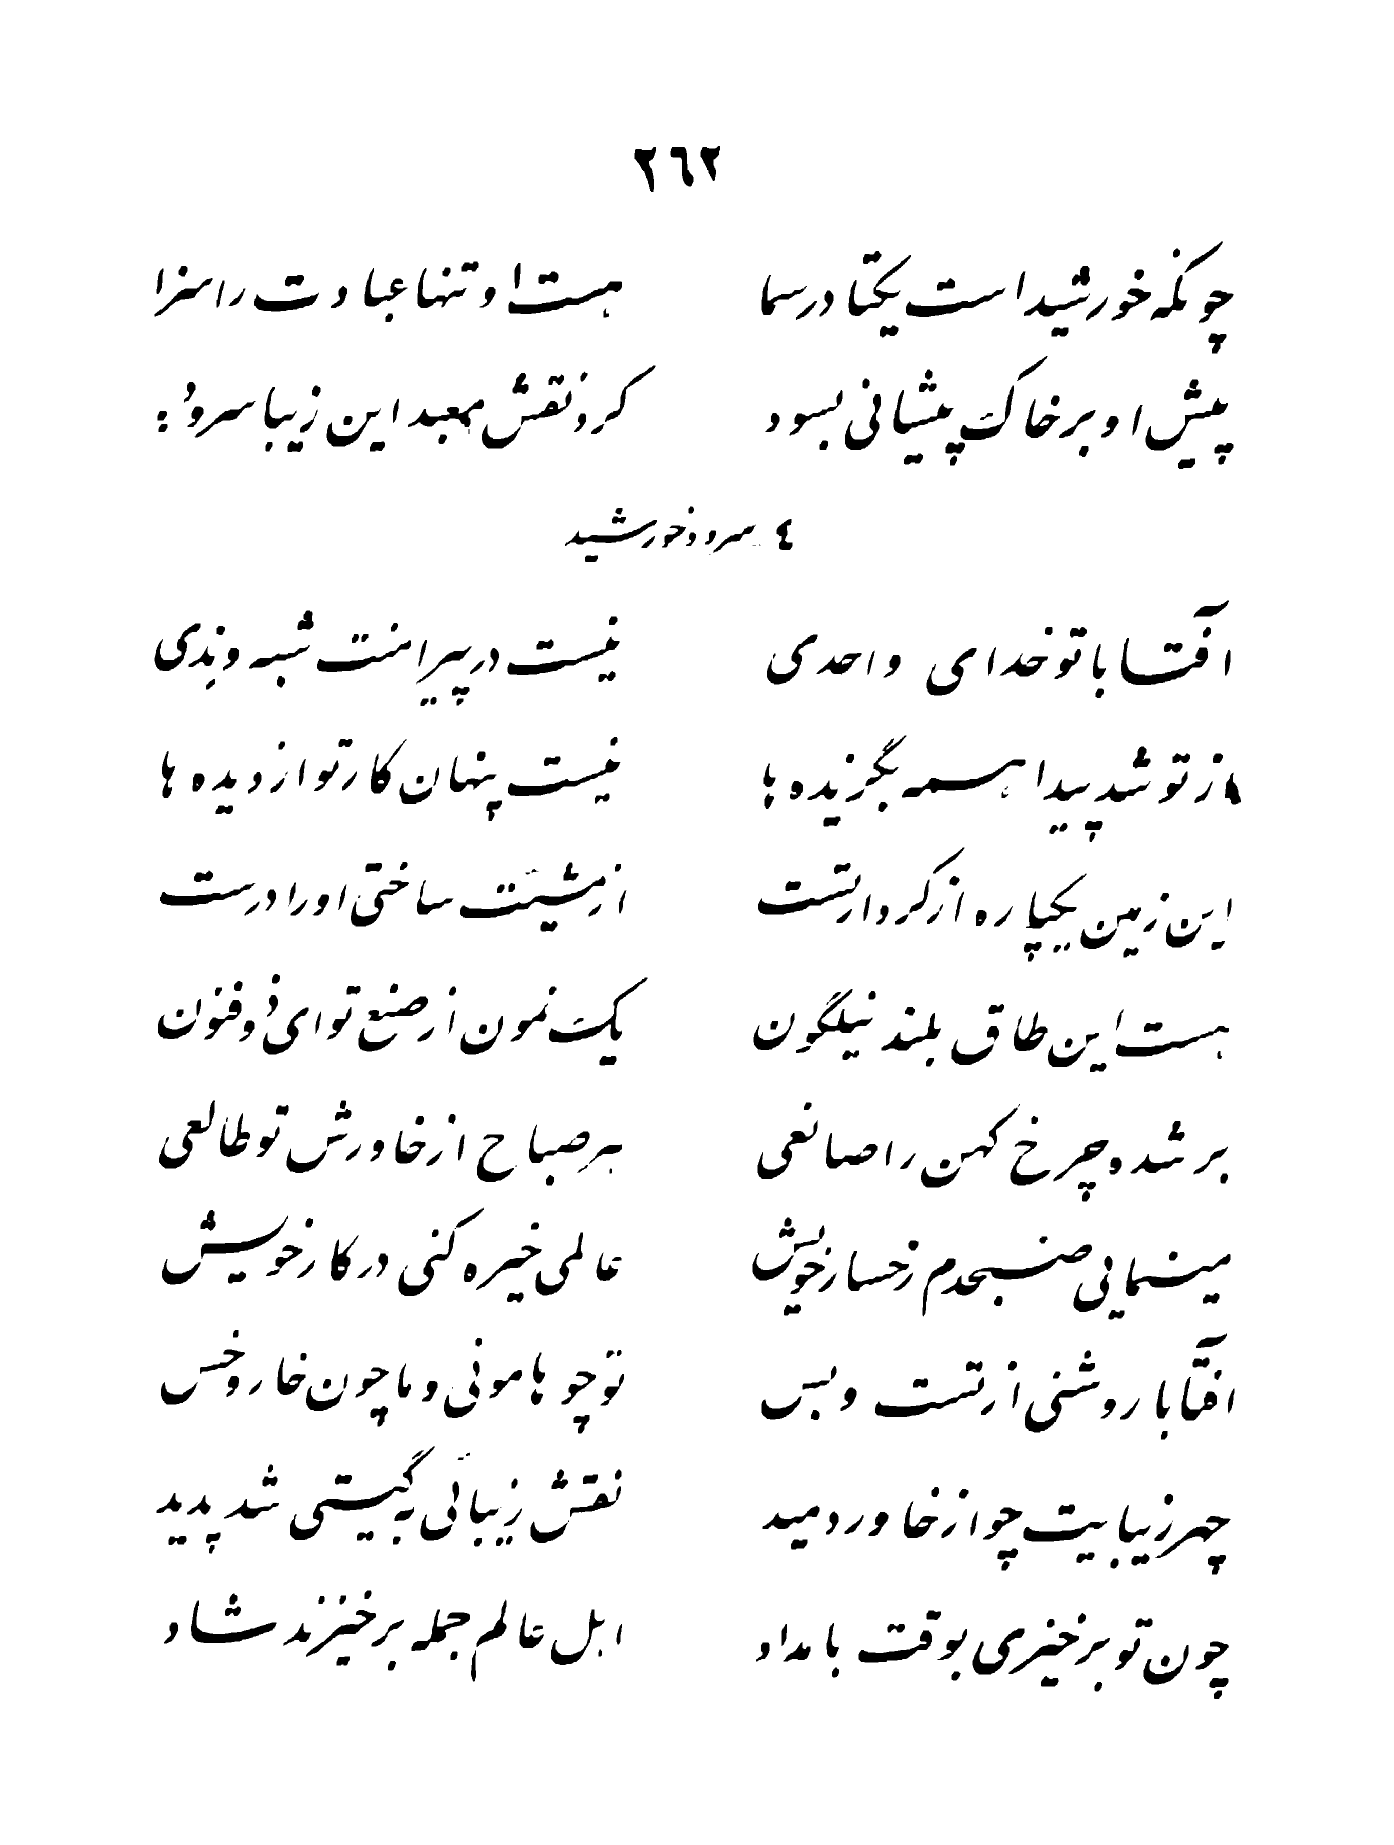 ٢٦٢
چونکه خورشید است یکتا در سما هست او تنها عبادت را سزا
پیش او بر خاک پیشانی بسود کرد نقش معبد این زیبا سرود:
٤ سرود خورشید
آفتابا تو خدای واحدی نیست در پیرامنت شبه و نِدی
از تو شد پیدا همه بگزیده ها نیست پنهان کار تو از دیده ها
این زمین یکپاره از کردار تست از مشیّت ساختی او را درست
هست این طاق بلند نیلگون یک نمون از صنع تو ای ذوفنون
بر شد و چرخ کهن را صانعی هر صباح از خاورش تو طالعی
مینمایی صبحدم رخسار خویش عالمی خیره کنی در کار خویش
آفتابا روشنی از تست و بس تو چو هامونی و ما چون خار و خس
چهر زیبایت چو از خاور دمید نقش زیبائی به گیتی شد پدید
چون تو برخیزی بوقت بامداد اهل عالم جمله برخیزند شاد